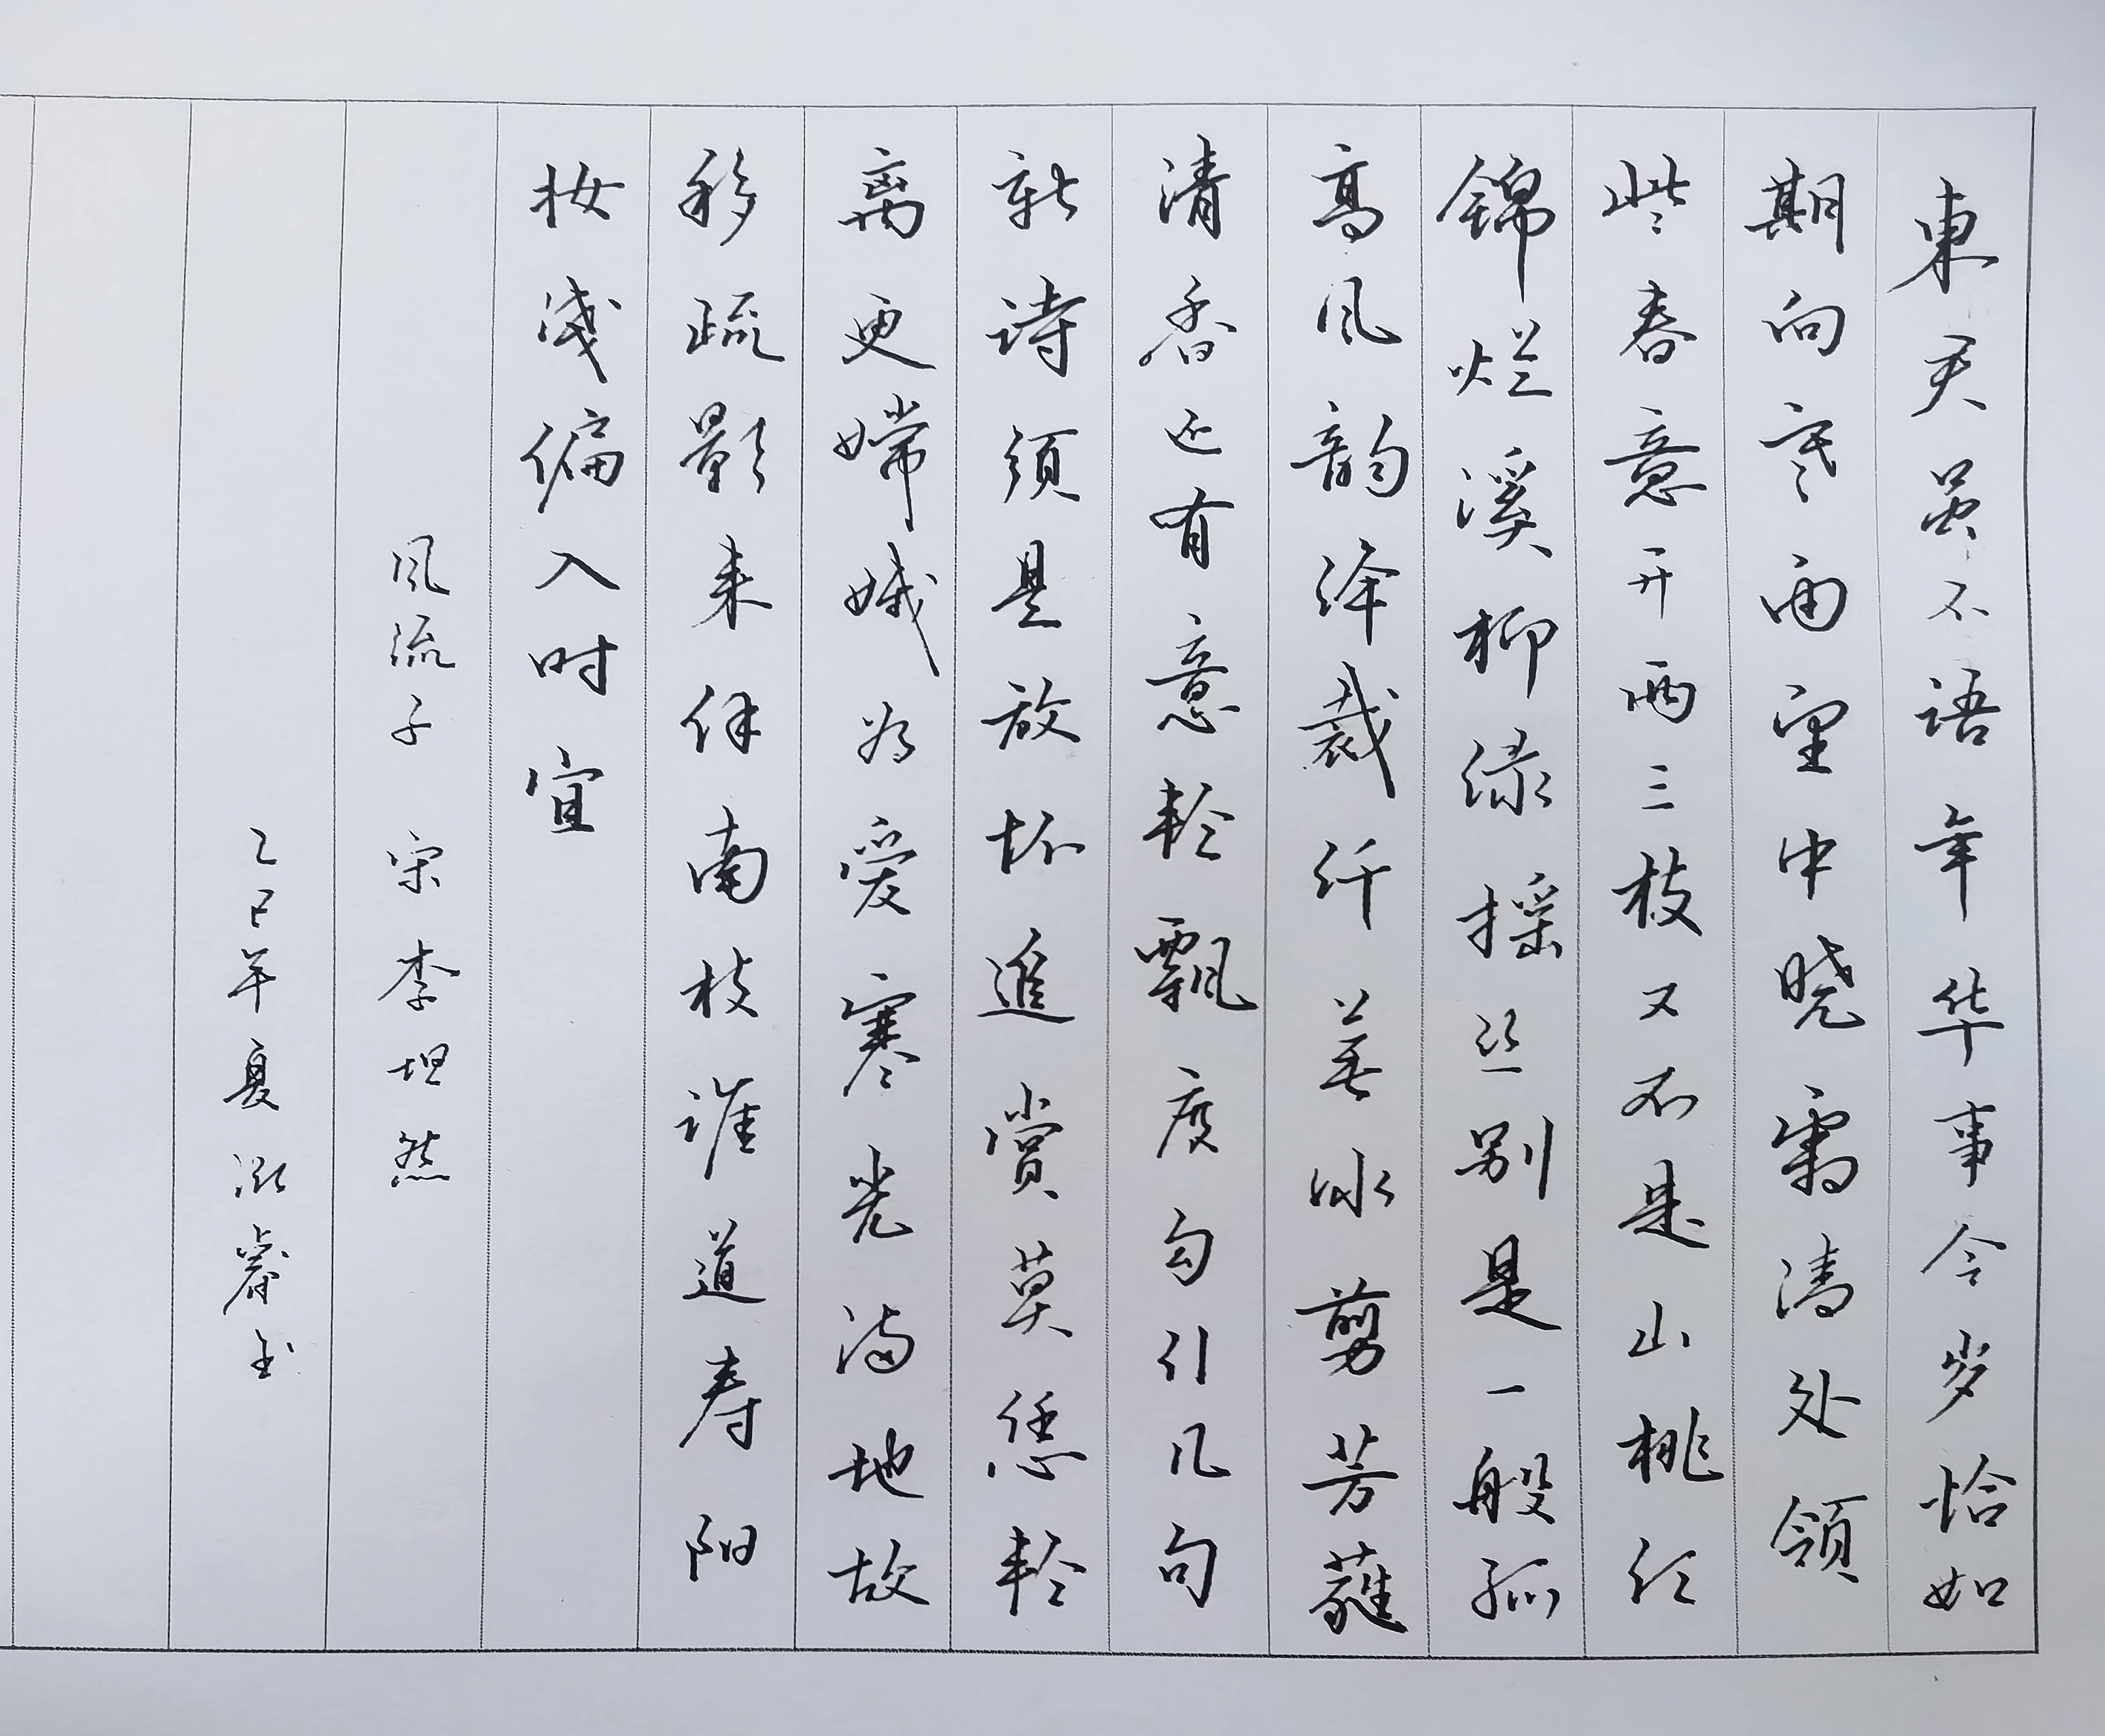 東君虽不语年华事今岁恰如
期向寒雨望中晓霜清处领
些春意开两三枝又不是山桃红
锦烂溪柳绿摇丝别是一般孤
高风韵绛裁纤萼冰剪芳蕤
清香还有意轻飘度勾引几句
新诗须是放怀追赏莫恁轻
离更嫦娥为爱寒光满地故
移疏影来伴南枝谁道寿阳
妆浅偏入时宜
风流子 宋李坦然
乙巳年夏 书